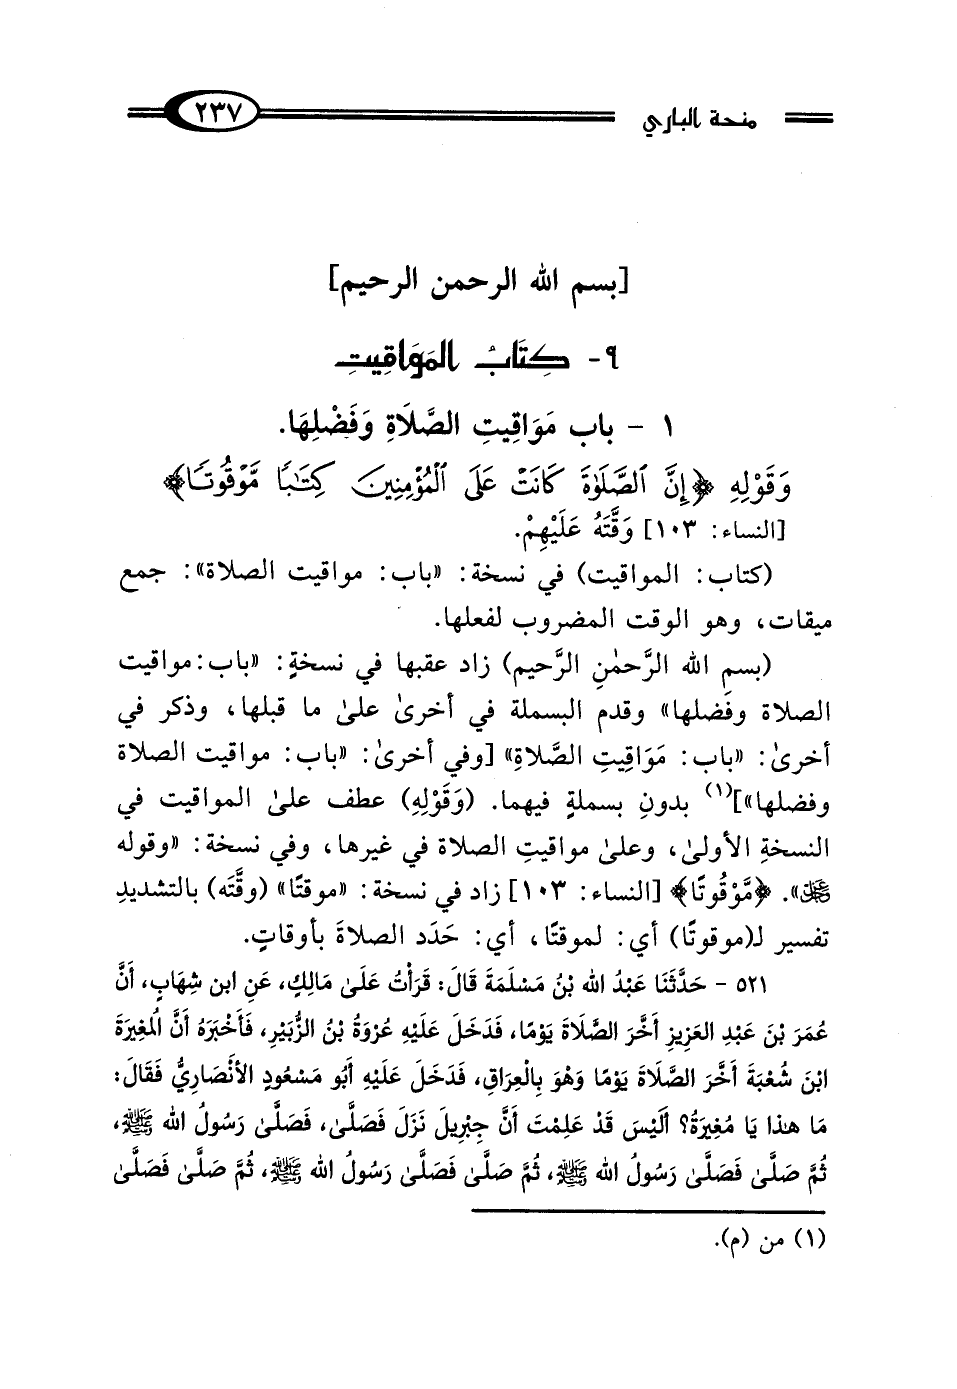 منحة الباري ٢٣٧
[بسم الله الرحمن الرحيم]
٩- كِتَابُ المَوَاقِيتِ
١ - باب مَوَاقِيتِ الصَّلَاةِ وَفَضْلِهَا.
وَقَوْلِهِ ﴿إِنَّ ٱلصَّلَوٰةَ كَانَتْ عَلَى ٱلْمُؤْمِنِينَ كِتَٰبًا مَّوْقُوتًا﴾
[النساء: ١٠٣] وَقَّتَهُ عَلَيْهِمْ.
(كتاب: المواقيت) في نسخة: «باب: مواقيت الصلاة»: جمع
ميقات، وهو الوقت المضروب لفعلها.
(بسم الله الرَّحمٰنِ الرَّحيم) زاد عقبها في نسخةٍ: «باب:مواقيت
الصلاة وفَضلها» وقدم البسملة في أخرىٰ علىٰ ما قبلها، وذكر في
أخرىٰ: «باب: مَوَاقِيتِ الصَّلاةِ» [وفي أخرىٰ: «باب: مواقيت الصلاة
وفضلها»](١) بدونِ بسملةٍ فيهما. (وَقَوْلِهِ) عطف علىٰ المواقيت في
النسخةِ الأولىٰ، وعلىٰ مواقيتِ الصلاة في غيرها، وفي نسخة: «وقوله
ﷻ». ﴿مَّوْقُوتًا﴾ [النساء: ١٠٣] زاد في نسخة: «موقتًا» (وقَّتَه) بالتشديدِ
تفسير لـ(موقوتًا) أي: لموقتًا، أي: حَدَد الصلاةَ بأوقاتٍ.
٥٢١ - حَدَّثَنَا عَبْدُ الله بْنُ مَسْلَمَةَ قَالَ: قَرَأْتُ عَلَىٰ مَالِكٍ، عَنِ ابن شِهَابٍ، أَنَّ
عُمَرَ بْنَ عَبْدِ العَزِيزِ أَخَّرَ الصَّلَاةَ يَوْمًا، فَدَخَلَ عَلَيْهِ عُرْوَةُ بْنُ الزُّبَيْرِ، فَأَخْبَرَهُ أَنَّ المُغِيرَةَ
ابْنَ شُعْبَةَ أَخَّرَ الصَّلَاةَ يَوْمًا وَهْوَ بِالْعِرَاقِ، فَدَخَلَ عَلَيْهِ أَبُو مَسْعُودٍ الأَنْصَارِيُّ فَقَالَ:
مَا هٰذا يَا مُغِيرَةُ؟ أَلَيْسَ قَدْ عَلِمْتَ أَنَّ جِبْرِيلَ نَزَلَ فَصَلَّىٰ، فَصَلَّىٰ رَسُولُ الله ﷺ،
ثُمَّ صَلَّىٰ فَصَلَّىٰ رَسُولُ الله ﷺ، ثُمَّ صَلَّىٰ فَصَلَّىٰ رَسُولُ الله ﷺ، ثُمَّ صَلَّىٰ فَصَلَّىٰ
(١) من (م).